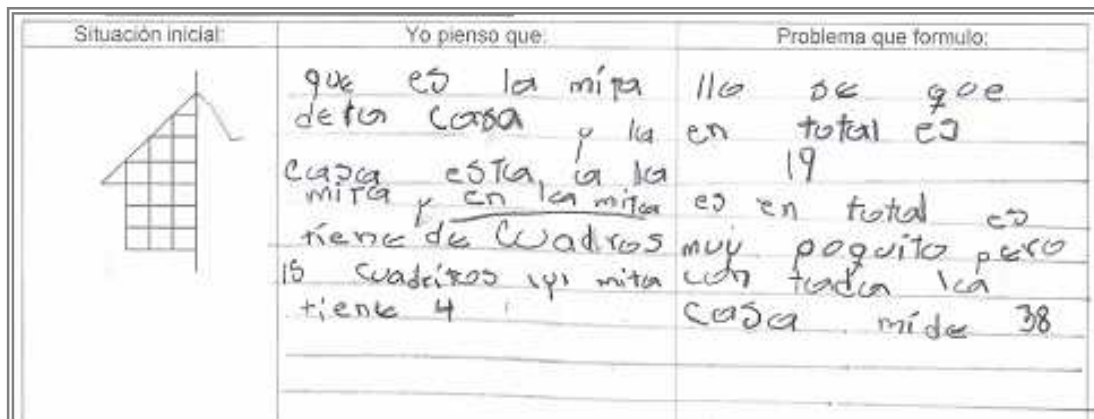 Situación inicial:
Yo pienso que:
Problema que formulo:
que es la mita
de la casa y la
casa esta a la
mita y en la mita
tiene de cuadros
15 cuadritos y mita
tiene 4
llo se que
en total es
19
es en total es
muy poquito pero
con toda la
casa mide 38